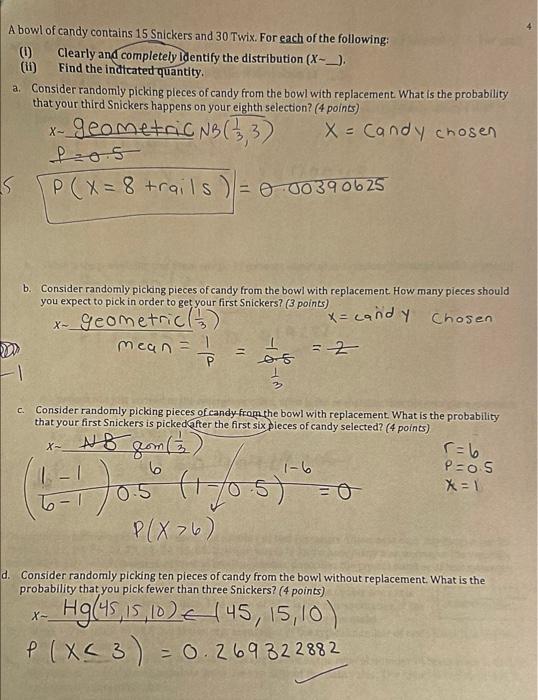 4
A bowl of candy contains 15 Snickers and 30 Twix. For each of the following:
(i) Clearly and completely identify the distribution (X~__).
(ii) Find the indicated quantity.
a. Consider randomly picking pieces of candy from the bowl with replacement. What is the probability
that your third Snickers happens on your eighth selection? (4 points)
X~ geometric NB(1/3, 3) X = candy chosen
P=0.5
P(X = 8 trails) = 0.00390625
b. Consider randomly picking pieces of candy from the bowl with replacement. How many pieces should
you expect to pick in order to get your first Snickers? (3 points)
X~ geometric(1/3) X = candy chosen
mean = 1/P = 1/0.5 = 2
1/3
-1
c. Consider randomly picking pieces of candy from the bowl with replacement. What is the probability
that your first Snickers is picked after the first six pieces of candy selected? (4 points)
X~ NB geom(1/3)
r=6
P=0.5
X=1
(1-1/6-1) 0.5^6 (1-0.5)^1-6 = 0
P(X>6)
d. Consider randomly picking ten pieces of candy from the bowl without replacement. What is the
probability that you pick fewer than three Snickers? (4 points)
X~ Hg(45,15,10) (45, 15, 10)
P(X< 3) = 0.269322882